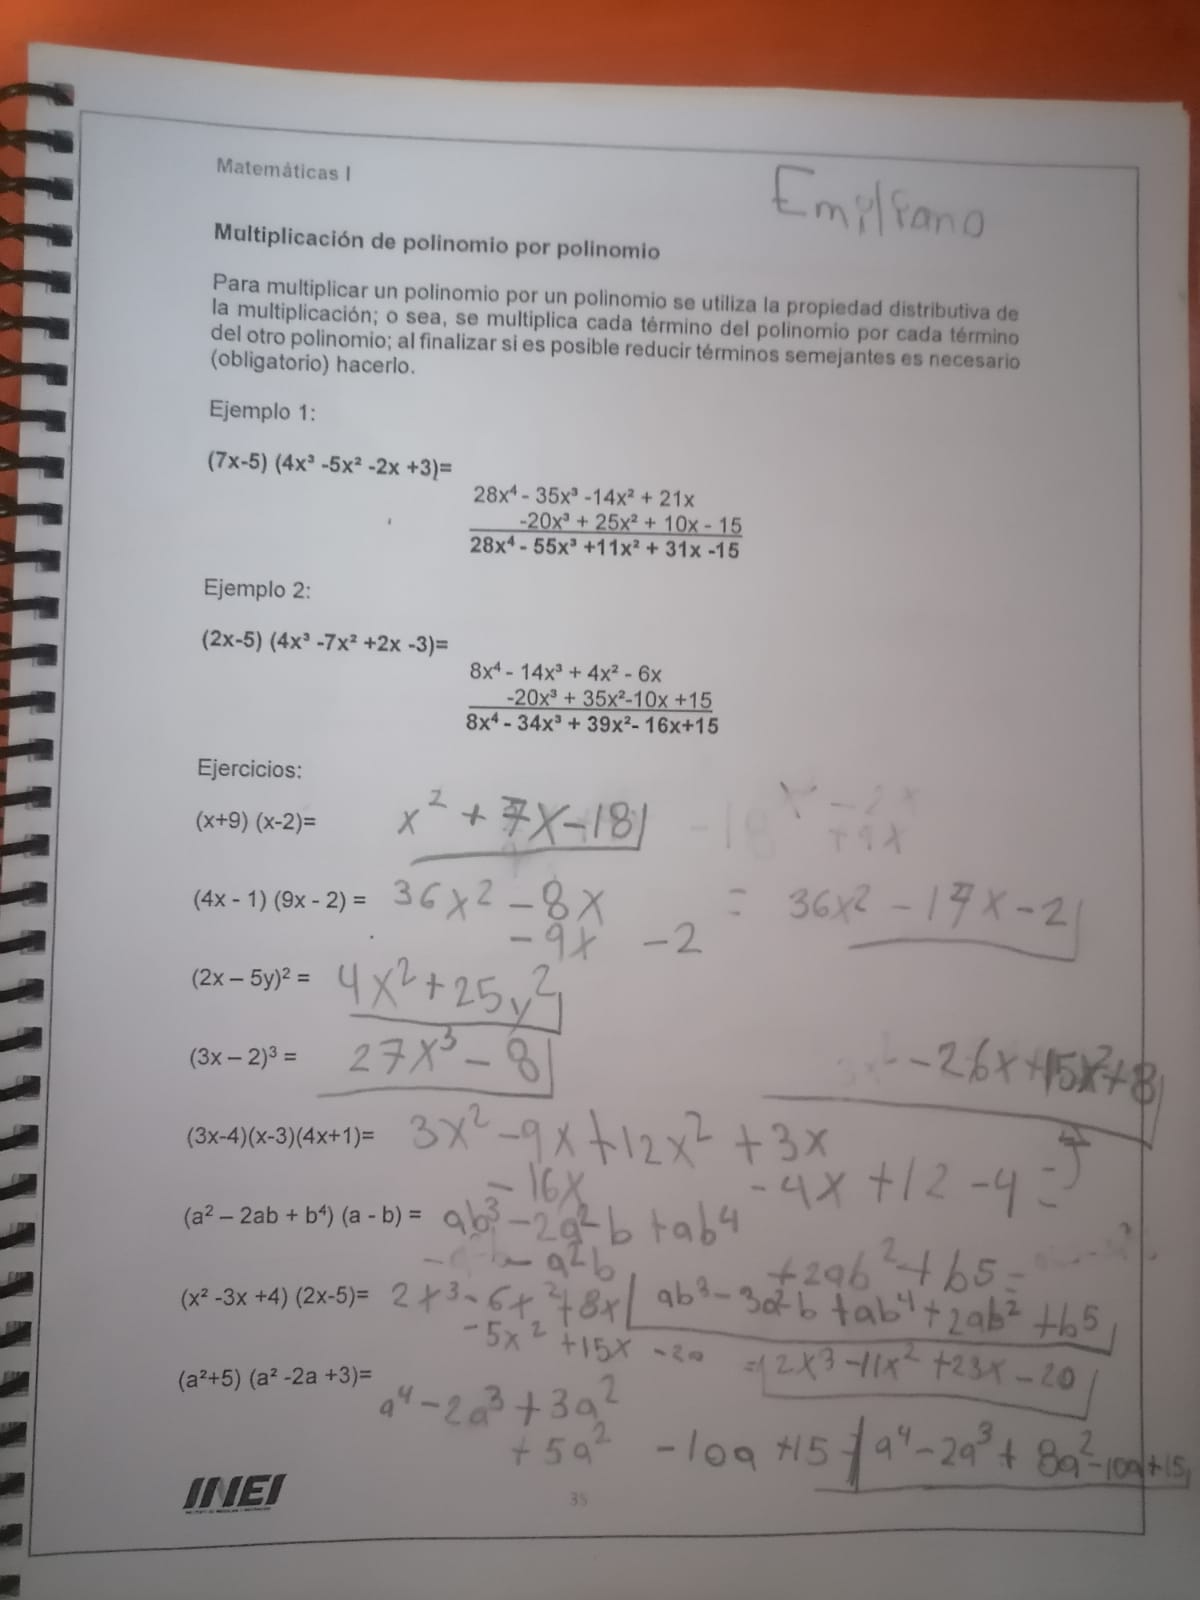 Matemáticas I
Emiliano
Multiplicación de polinomio por polinomio
Para multiplicar un polinomio por un polinomio se utiliza la propiedad distributiva de
la multiplicación; o sea, se multiplica cada término del polinomio por cada término
del otro polinomio; al finalizar si es posible reducir términos semejantes es necesario
(obligatorio) hacerlo.
Ejemplo 1:
(7x-5) (4x³ -5x² -2x +3)=
28x⁴ - 35x³ -14x² + 21x
-20x³ + 25x² + 10x - 15
28x⁴ - 55x³ +11x² + 31x -15
Ejemplo 2:
(2x-5) (4x³ -7x² +2x -3)=
8x⁴ - 14x³ + 4x² - 6x
-20x³ + 35x²-10x +15
8x⁴ - 34x³ + 39x²- 16x+15
Ejercicios:
(x+9) (x-2)= x² + 7x-18
(4x - 1) (9x - 2) = 36x² - 8x = 36x² - 17x - 2
- 9x - 2
(2x – 5y)² = 4x² + 25y²
(3x – 2)³ = 27x³ - 8
-26x+15x²+8
(3x-4)(x-3)(4x+1)= 3x² - 9x + 12x² + 3x
- 16x - 4x + 12 - 4 =
(a² – 2ab + b⁴) (a - b) = ab³ - 2a²b + ab⁴
- a²b + 2ab² + b5 =
ab³ - 3a²b + ab⁴ + 2ab² + b5
(x² -3x +4) (2x-5)= 2x³ - 6x² + 8x
- 5x² + 15x - 20 = 2x³ - 11x² + 23x - 20
(a²+5) (a² -2a +3)=
a⁴ - 2a³ + 3a²
+ 5a² - 10a + 15 = a⁴ - 2a³ + 8a² - 10a + 15
INEI
35